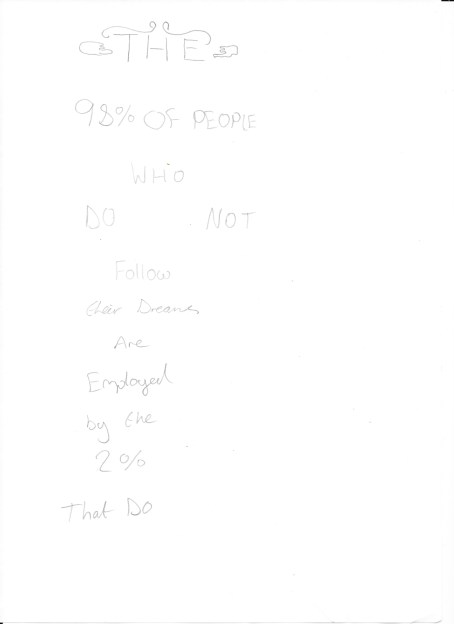 THE
98% OF PEOPLE
WHO
DO NOT
Follow
their Dreams
Are
Employed
by the
2%
That Do